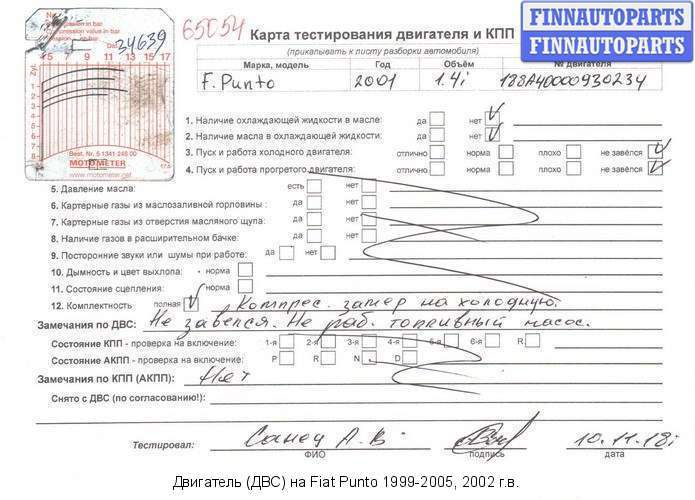 65054
Карта тестирования двигателя и КПП
(прикалывать к листу разборки автомобиля)
FINNAUTOPARTS
FINNAUTOPARTS
34639
4 5 7 9 11 13 15 17
Best. Nr. 5 1341 245 00
MOTOMETER
www.motometer.net
Марка, модель Год Объём № двигателя
F. Punto 2001 1.4i 188A40000930234
1. Наличие охлаждающей жидкости в масле: да нет
2. Наличие масла в охлаждающей жидкости: да нет
3. Пуск и работа холодного двигателя: отлично норма плохо не завёлся
4. Пуск и работа прогретого двигателя: отлично норма плохо не завёлся
5. Давление масла: есть нет
6. Картерные газы из маслозаливной горловины: да нет
7. Картерные газы из отверстия масляного щупа: да нет
8. Наличие газов в расширительном бачке: да нет
9. Посторонние звуки или шумы при работе: да нет
10. Дымность и цвет выхлопа: норма
11. Состояние сцепления: норма
12. Комплектность полная Компрес. замер на холодную.
Замечания по ДВС: Не завелся. Не раб. топливный насос.
Состояние КПП - проверка на включение: 1-я 2-я 3-я 4-я 5-я 6-я R
Состояние АКПП - проверка на включение: P R N D
Замечания по КПП (АКПП): Нет
Снято с ДВС (по согласованию!):
Тестировал: А. В. 10.11.18г
ФИО подпись дата
Двигатель (ДВС) на Fiat Punto 1999-2005, 2002 г.в.